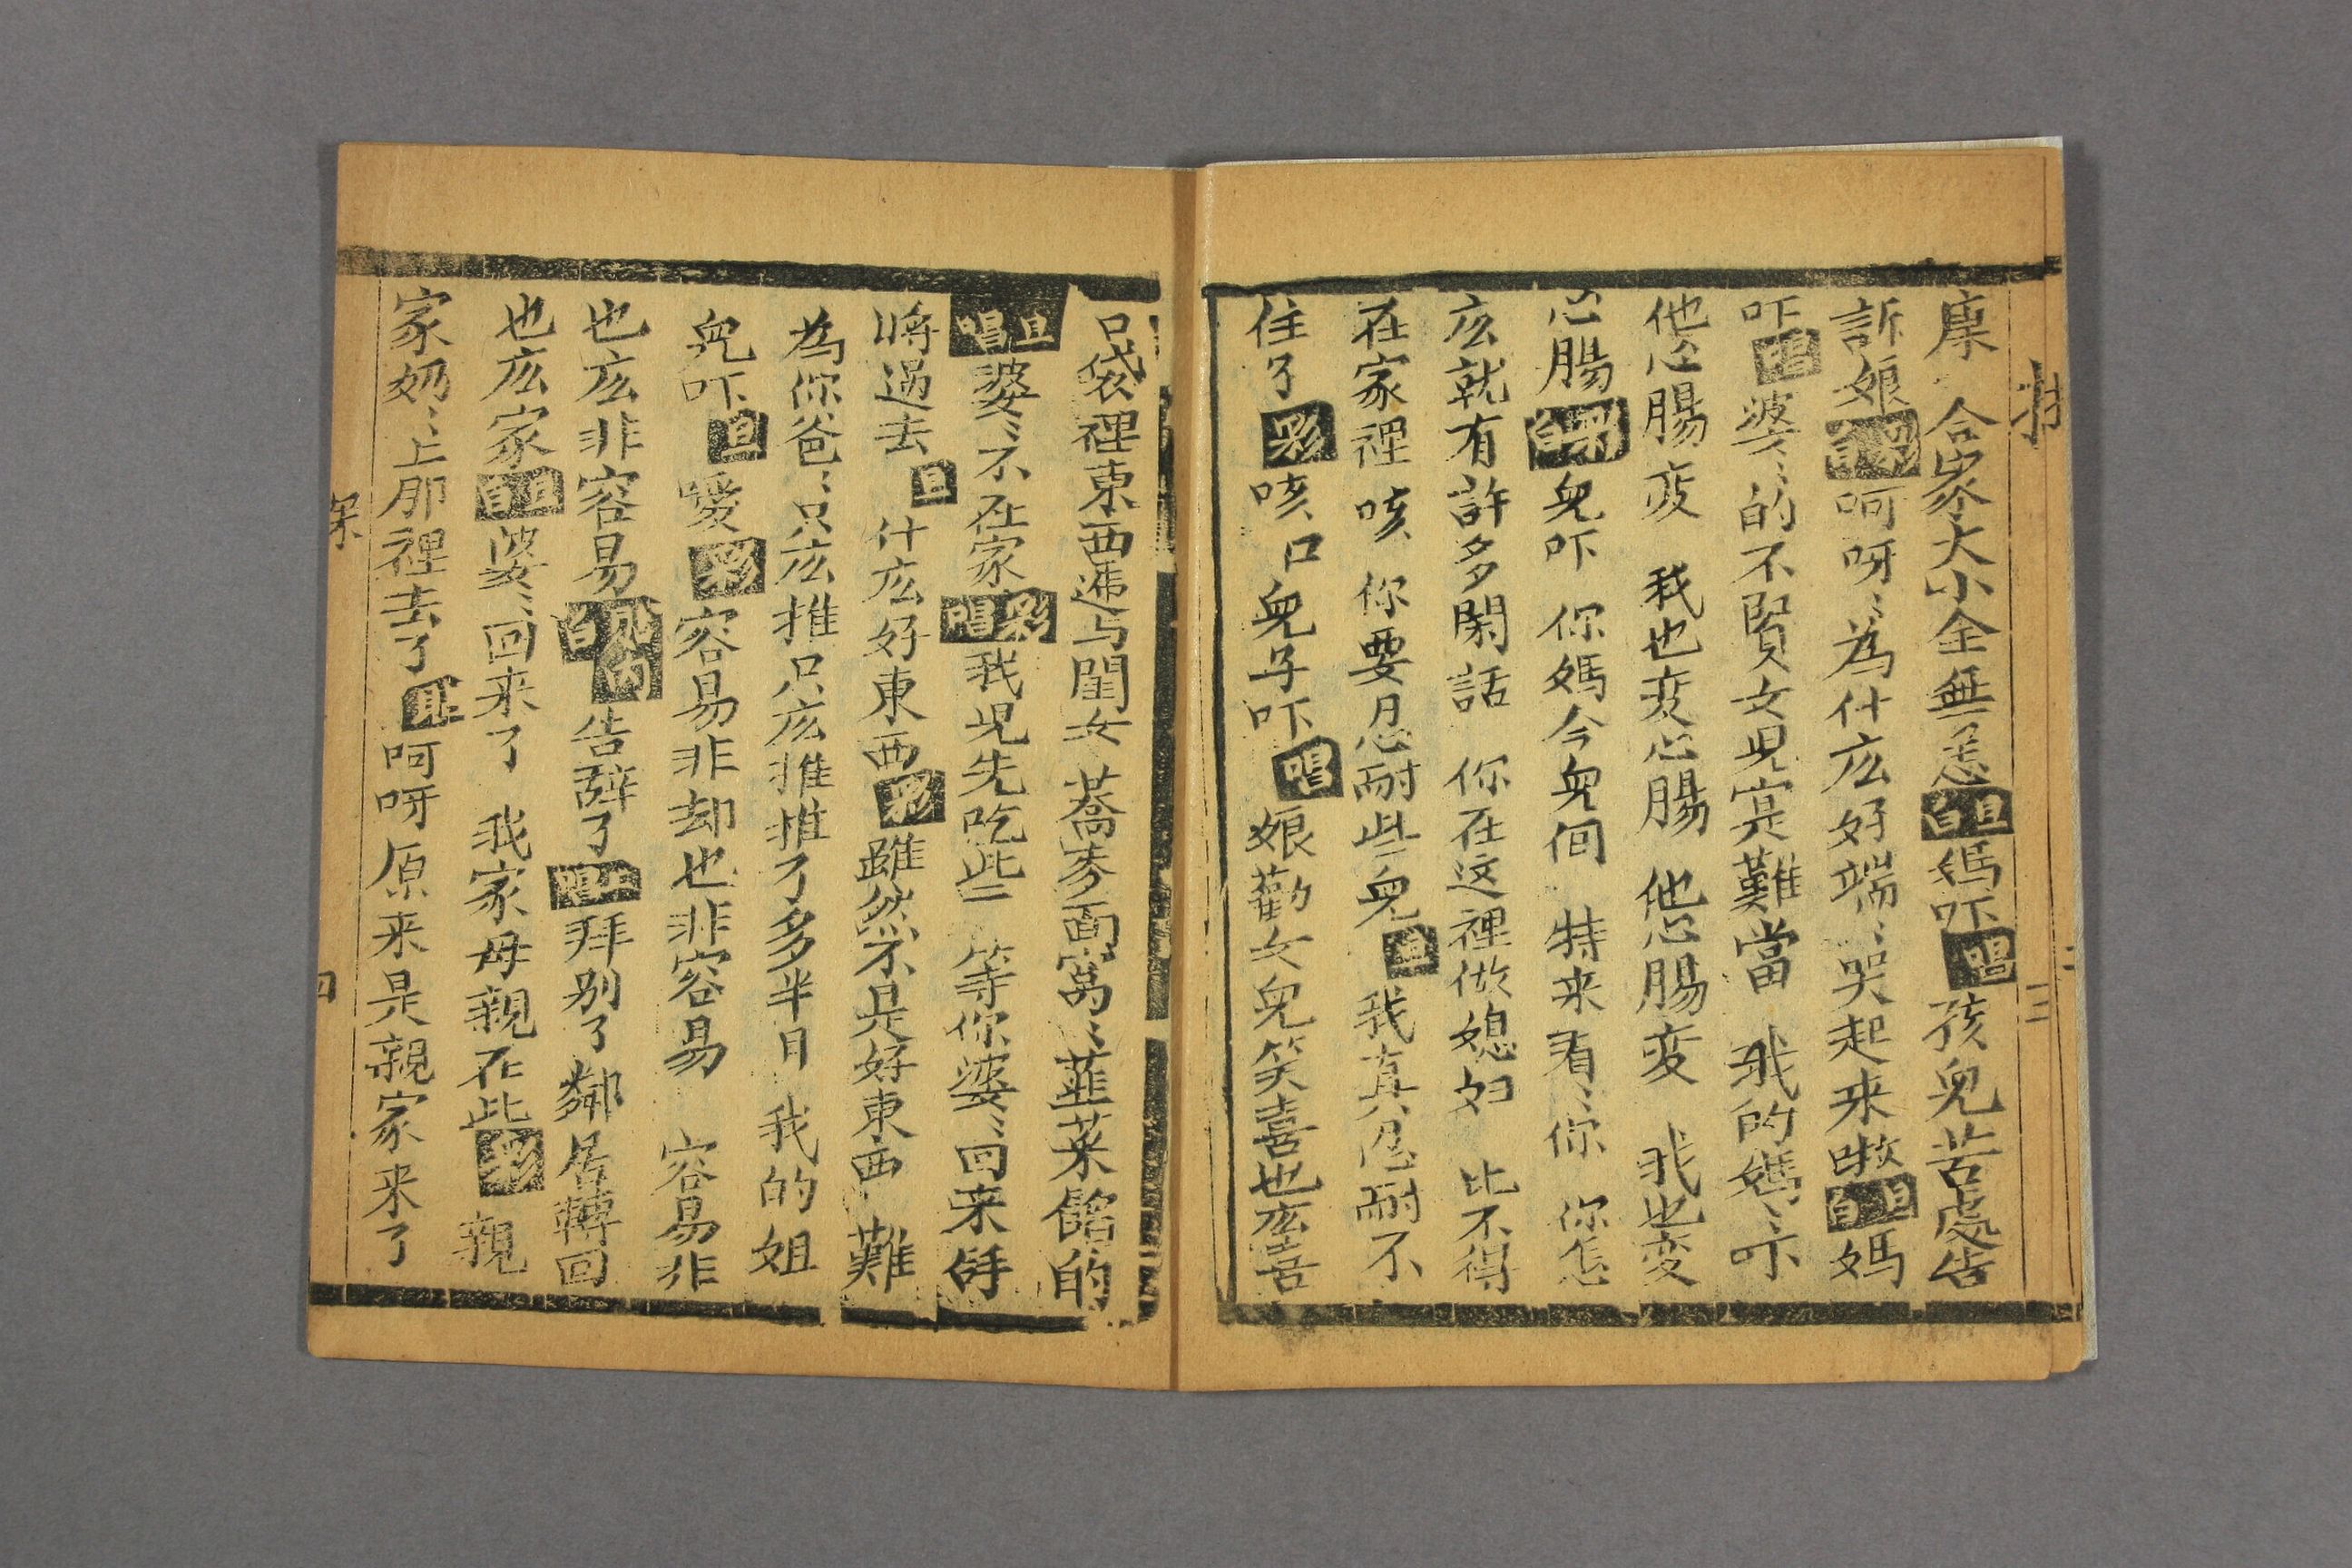 康 合家大小全無恙旦白媽吓唱孩兒苦處告
訴娘彩白呵呀〻為什庅好端〻哭起来㗒旦白媽
吓唱婆〻的不賢女児寔難當 我的媽〻吓
他心腸变 我也变心腸 他心腸变 我也变
心腸彩白兒吓 你媽今兒個 特来看〻你 你怎
庅就有許多閑話 你在这裡做媳妇 比不得
在家裡 咳 你要忍耐些兒旦我真忍耐不
住了彩咳 口兒子吓唱娘勸女兒笑喜也庅喜
口袋裡東西遞与閨女 蕎麥面窩〻韮菜餡的
旦唱婆〻不在家彩唱我児先吃些 等你婆〻回来
將過去旦什庅好東西彩雖然不是好東西 難
為你爸〻只庅推只庅推推了多半日 我的姐
兒吓旦噯彩容易非却也非容易 容易非
也庅非容易白告辞了唱拜别了鄰居轉回
也庅家旦白婆〻回来了 我家母親在此彩親
家奶〻上那裡去了丑呵呀原来是親家来了
探
三
四